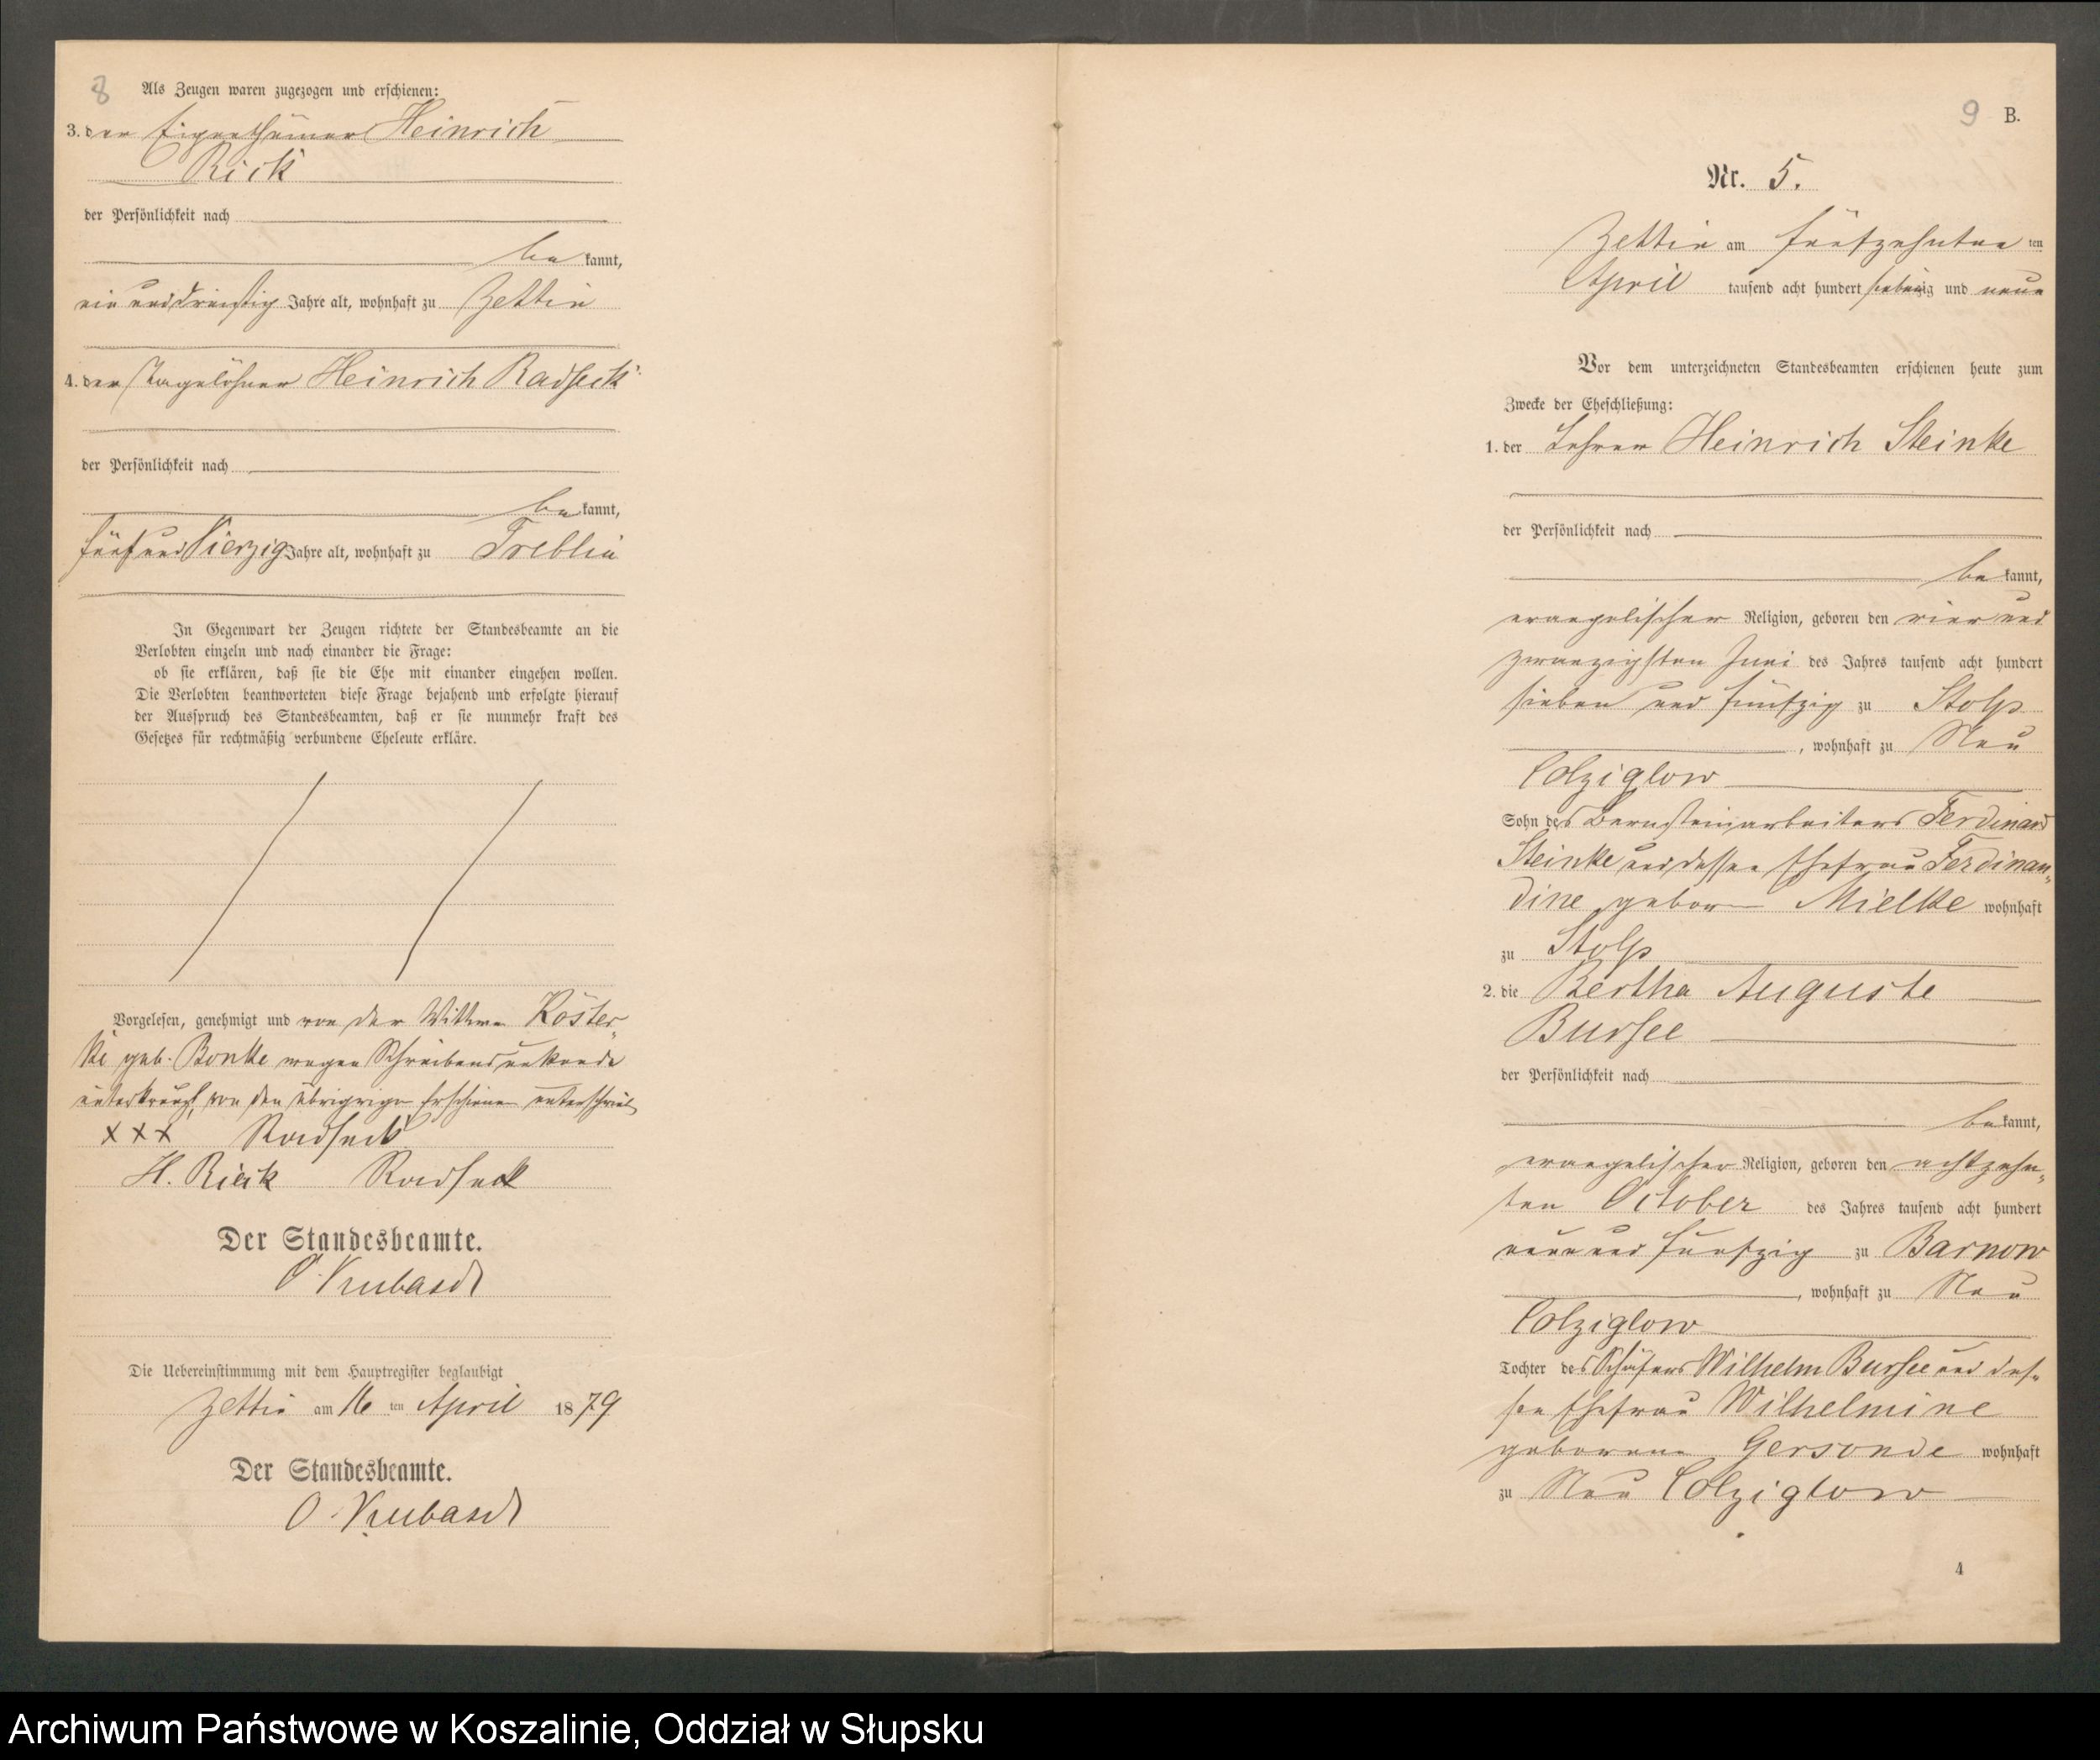 8
Als Zeugen waren zugezogen und erschienen:
3. der Eigenthümer Heinrich
Rick
der Persönlichkeit nach
be kannt,
ein und dreißig Jahre alt, wohnhaft zu Zettin
4. der Tagelöhner Heinrich Radseck
der Persönlichkeit nach
be kannt,
fünf und Vierzig Jahre alt, wohnhaft zu Treblin
In Gegenwart der Zeugen richtete der Standesbeamte an die
Verlobten einzeln und nach einander die Frage:
ob sie erklären, daß sie die Ehe mit einander eingehen wollen.
Die Verlobten beantworteten diese Frage bejahend und erfolgte hierauf
der Ausspruch des Standesbeamten, daß er sie nunmehr kraft des
Gesetzes für rechtmäßig verbundene Eheleute erkläre.
Vorgelesen, genehmigt und von der Wittwe Köster-
ke geb. Bonke wegen Schreibensunkunde
unterkreuzt, von den übrigen Erschienen unterschrieb
xxx Radseck
H. Rieck Radseck
Der Standesbeamte.
O.
Die Uebereinstimmung mit dem Hauptregister beglaubigt
Zettin am 16 ten April 1879
Der Standesbeamte.
O.
9 B.
Nr. 5.
Zettin am fünfzehnten ten
April tausend acht hundert siebenzig und neun
Vor dem unterzeichneten Standesbeamten erschienen heute zum
Zwecke der Eheschließung:
1. der Lehrer Heinrich Steinke
der Persönlichkeit nach
be kannt,
evangelischer Religion, geboren den vier und
zwanzigsten Juni des Jahres tausend acht hundert
sieben und fünfzig zu Stolp
, wohnhaft zu Neu
Colziglow
Sohn des Bernsteinarbeiters Ferdinand
Steinke und dessen Ehefrau Ferdinan-
dine geboren Mielke wohnhaft
zu Stolp
2. die Bertha Auguste
Bursee
der Persönlichkeit nach
be kannt,
evangelischer Religion, geboren den achtzehn-
ten October des Jahres tausend acht hundert
neun und fünfzig zu Barnow
, wohnhaft zu Neu
Colziglow
Tochter des Schäfers Wilhelm Bursee und des-
sen Ehefrau Wilhelmine
geborene Gersonde wohnhaft
zu Neu Colziglow
4
Archiwum Państwowe w Koszalinie, Oddział w Słupsku